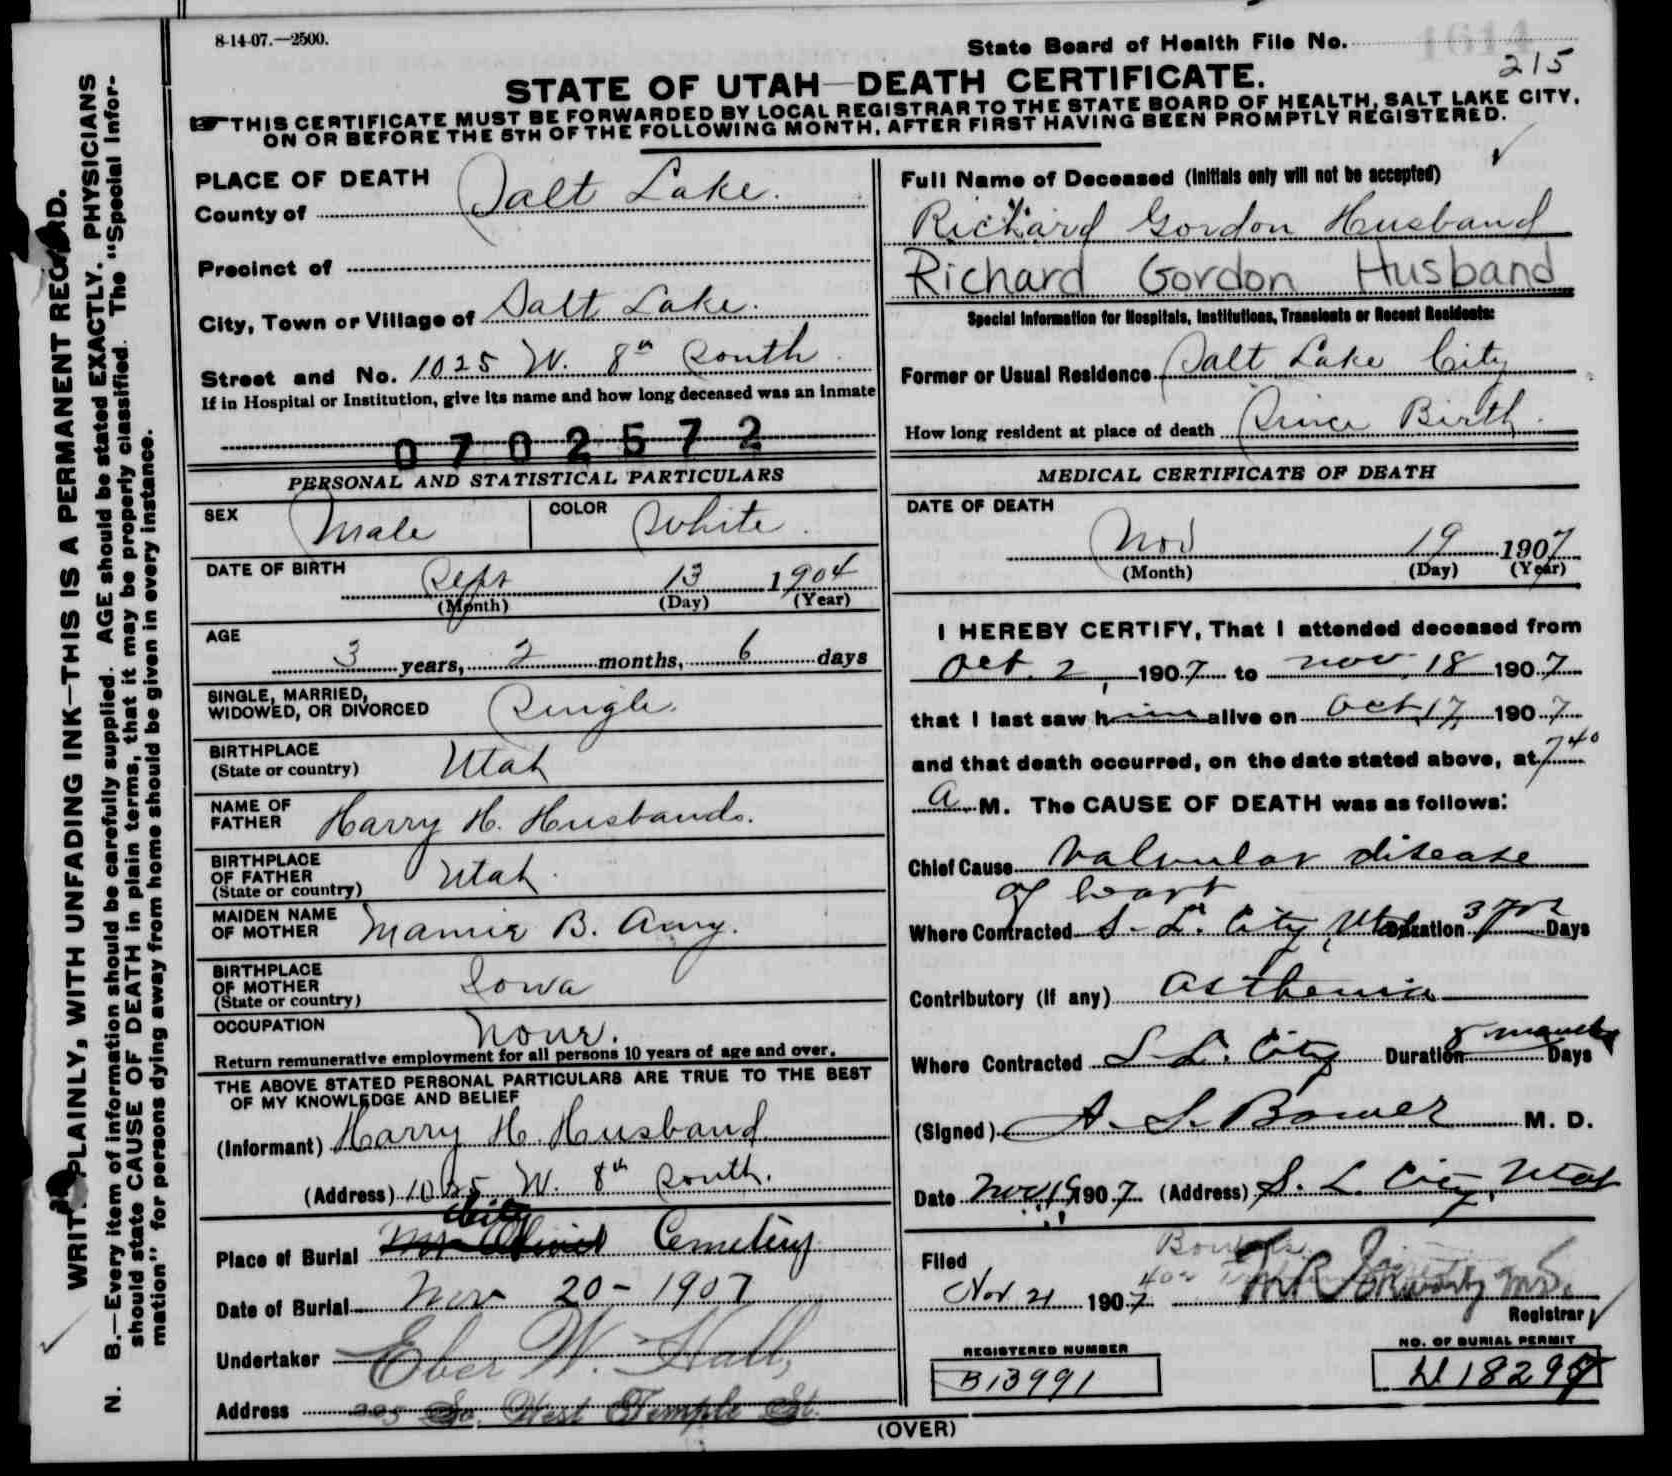 8-14-07.—2500.
State Board of Health File No. 1614
215
STATE OF UTAH—DEATH CERTIFICATE.
THIS CERTIFICATE MUST BE FORWARDED BY LOCAL REGISTRAR TO THE STATE BOARD OF HEALTH, SALT LAKE CITY,
ON OR BEFORE THE 5TH OF THE FOLLOWING MONTH, AFTER FIRST HAVING BEEN PROMPTLY REGISTERED.
WRITE PLAINLY, WITH UNFADING INK—THIS IS A PERMANENT RECORD.
N. B.—Every item of information should be carefully supplied. AGE should be stated EXACTLY. PHYSICIANS
should state CAUSE OF DEATH in plain terms, that it may be properly classified. The "Special Infor-
mation" for persons dying away from home should be given in every instance.
PLACE OF DEATH
County of Salt Lake.
Precinct of
City, Town or Village of Salt Lake.
Street and No. 1025 W. 8th South.
If in Hospital or Institution, give its name and how long deceased was an inmate
0702572
Full Name of Deceased (Initials only will not be accepted)
Richard Gordon Husband
Richard Gordon Husband
Special Information for Hospitals, Institutions, Transients or Recent Residents:
Former or Usual Residence Salt Lake City
How long resident at place of death Since Birth.
PERSONAL AND STATISTICAL PARTICULARS
SEX Male COLOR White.
DATE OF BIRTH Sept 13 1904
(Month) (Day) (Year)
AGE
3 years, 2 months, 6 days
SINGLE, MARRIED,
WIDOWED, OR DIVORCED Single.
BIRTHPLACE
(State or country) Utah
NAME OF
FATHER Harry H. Husband.
BIRTHPLACE
OF FATHER
(State or country) Utah.
MAIDEN NAME
OF MOTHER Mamie B. Amy.
BIRTHPLACE
OF MOTHER
(State or country) Iowa
OCCUPATION None.
Return remunerative employment for all persons 10 years of age and over.
THE ABOVE STATED PERSONAL PARTICULARS ARE TRUE TO THE BEST
OF MY KNOWLEDGE AND BELIEF
(Informant) Harry H. Husband
(Address) 1025 W. 8th South.
City
Place of Burial Mt Olivet Cemetery
Date of Burial Nov 20 - 1907
Undertaker Eber W. Hall,
Address So. West Temple St.
MEDICAL CERTIFICATE OF DEATH
DATE OF DEATH
Nov 19 1907
(Month) (Day) (Year)
I HEREBY CERTIFY, That I attended deceased from
Oct. 2, 1907 to Nov. 18 1907
that I last saw him alive on Oct 17, 1907
and that death occurred, on the date stated above, at 7 40
a M. The CAUSE OF DEATH was as follows:
Chief Cause Valvular disease
of heart
Where Contracted S. L. City, Utah Duration 3 yrs Days
Contributory (If any) asthenia
Where Contracted S. L. City Duration 8 months Days
(Signed) A. S. Bower M. D.
Date Nov 19 1907 (Address) S. L. City, Utah
Filed
Nov 21 1907
Registrar
REGISTERED NUMBER
B13991
NO. OF BURIAL PERMIT
(OVER)